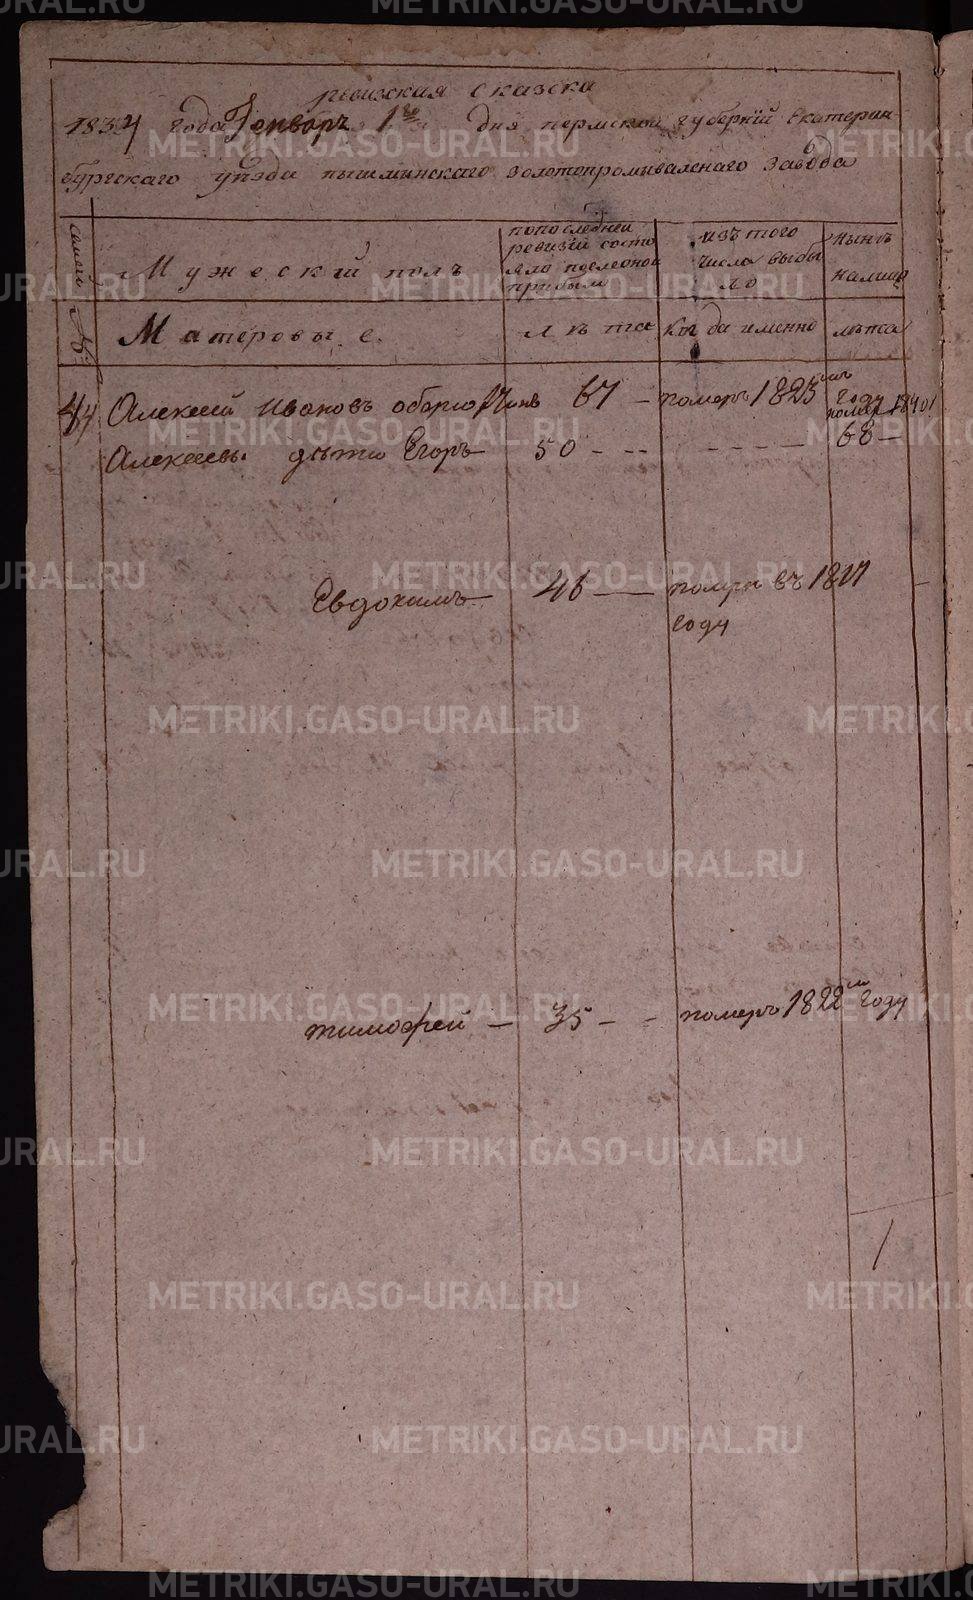 ревизская сказска
1834 года Генваръ 1го дня пермской губернïй Екатерин
бургскаго уѣзда пышминскаго золотопромываленаго завода
семьи №
Мужескïй полъ
попоследней
ревизïй состо
яло и
прибыли
изъ того
числа выбы
ло
нынѣ
налицо
Мастеровые.
лѣта
когда именно
лѣта
44 Алексей Ивановъ 67 – померъ 1823мъ году
померъ 18401
Алексеевы дѣти Егоръ 50 - - - - - - - 68 –
Евдокимъ 46 — въ 1817
году
тимофей – 35 – - померъ 1822м году
1
METRIKI.GASO-URAL.RU